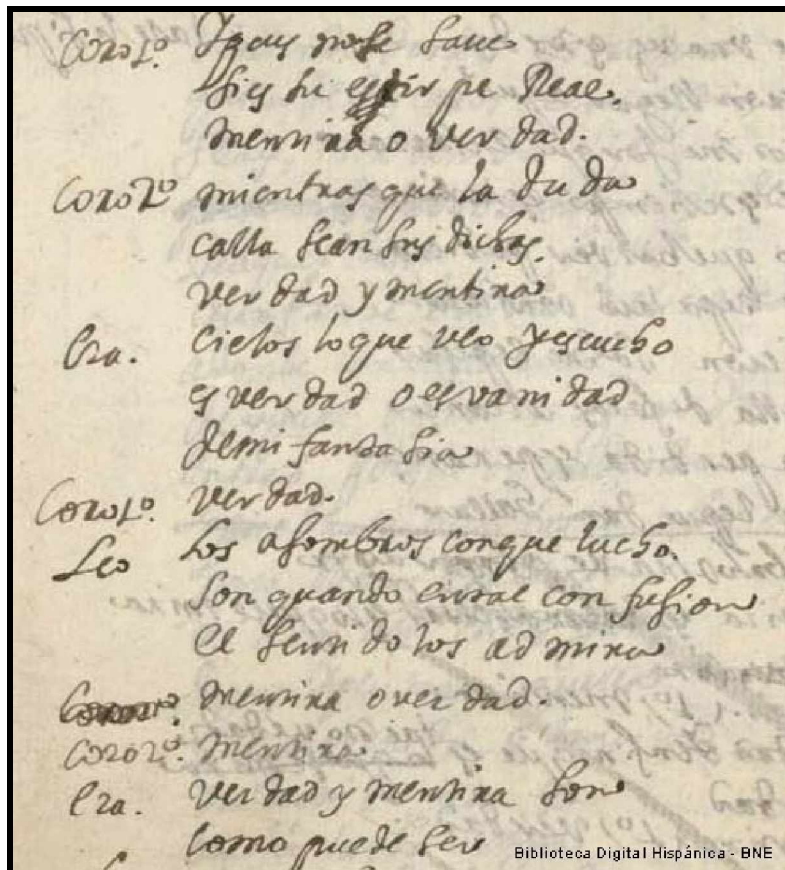 Coro 1º. Y pues no se save
si es su estirpe Real.
mentira o verdad.
Coro 2º mientras que la duda
calla sean sus dichas.
verdad y mentira
Era. Cielos lo que veo y escucho
es verdad o es vanidad
de mi fantasia
Coro 1º. verdad.
Leo Los asombros con que lucho.
son quando en tal confusion
el sentido los admira
mentira o verdad.
Coro 2º. mentira
Era. verdad y mentira son
como puede ser
Biblioteca Digital Hispánica - BNE